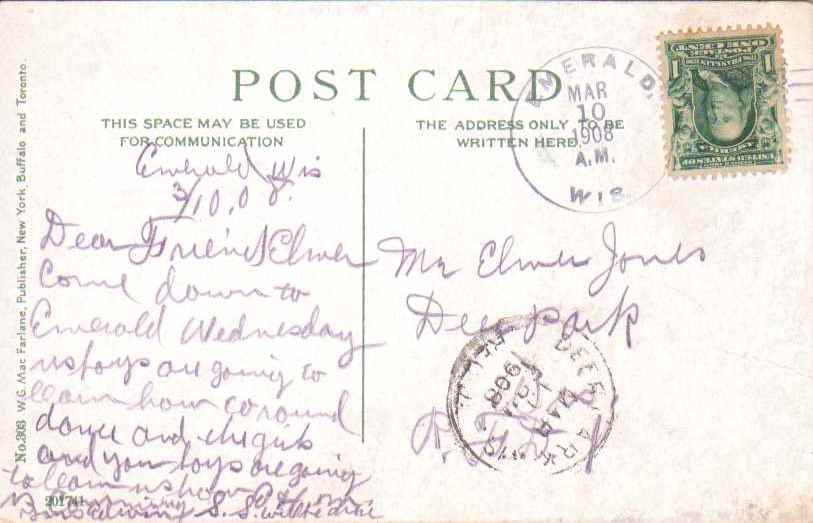 POST CARD
THIS SPACE MAY BE USED
FOR COMMUNICATION
THE ADDRESS ONLY TO BE
WRITTEN HERE
EMERALD,
MAR
10
1908
A.M.
WIS.
POSTAGE
ONE CENT
1 1
Emerald Wis
3/10.08.
Dear Friend Elmer
Come down to
Emerald Wednesday
us boys are going to
learn how to round
dance and the girls
and you boys are going
to learn us how
S. S. will be
Mr Elmer Jones
Deer park
R.F.D. 1
DEER PARK
MAR
1908
WIS.
No. 303 W.G. Mac Farlane, Publisher, New York, Buffalo and Toronto.
201741